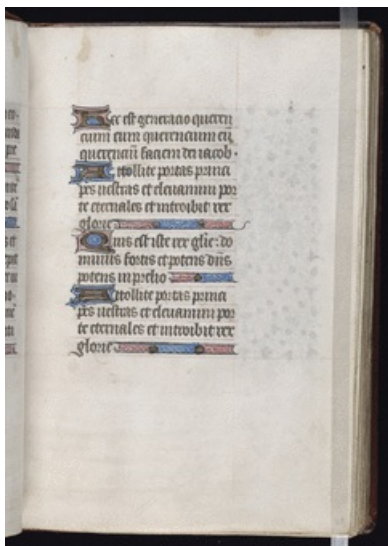 Hec est generacio queren
cium eum querencium eū
querenciū faciem dei iacob.
Attollite portas princi
pes uestras et eleuamini por
te eternales et introibit rex
glorie
Quis est iste rex glīe: do
minus fortis et potens dn̄s
potens in prelio
Attollite portas princi
pes uestras et eleuamini por
te eternales et introibit rex
glorie